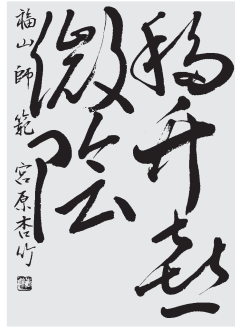 移喜
微陰
福山師範 宮原杏竹